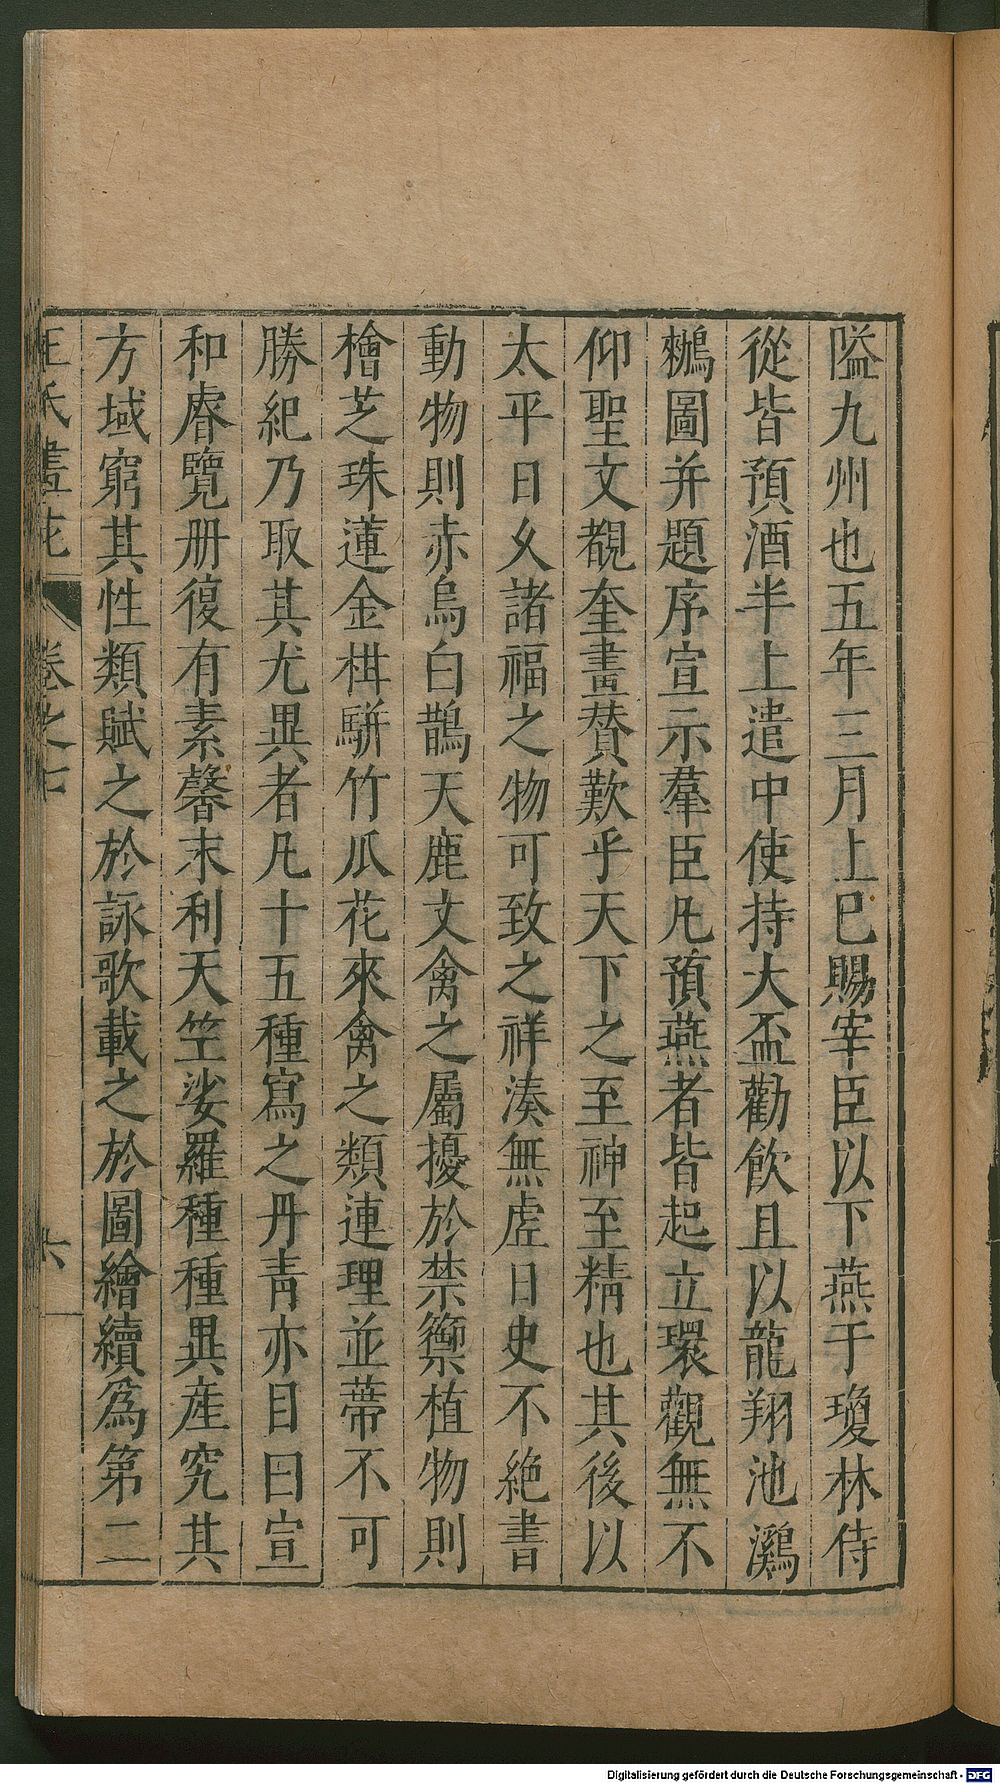 隘九州也五年三月上巳賜宰臣以下燕于瓊林侍
從皆預酒半上遣中使持大盃勸飲且以龍翔池鸂
鶒圖并題序宣示羣臣凡預燕者皆起立環觀無不
仰聖文覩奎畫贊歎乎天下之至神至精也其後以
太平日久諸福之物可致之祥湊無虛日史不絶書
動物則赤烏白鵲天鹿文禽之屬擾於禁籞植物則
檜芝珠蓮金柑駢竹瓜花來禽之類連理並蔕不可
勝紀乃取其尤異者凡十五種寫之丹青亦目曰宣
和睿覽册復有素馨末利天竺娑羅種種異產究其
方域窮其性類賦之於詠歌載之於圖繪續爲第二
王氏畫苑 卷之七 六
Digitalisierung gefördert durch die Deutsche Forschungsgemeinschaft - DFG